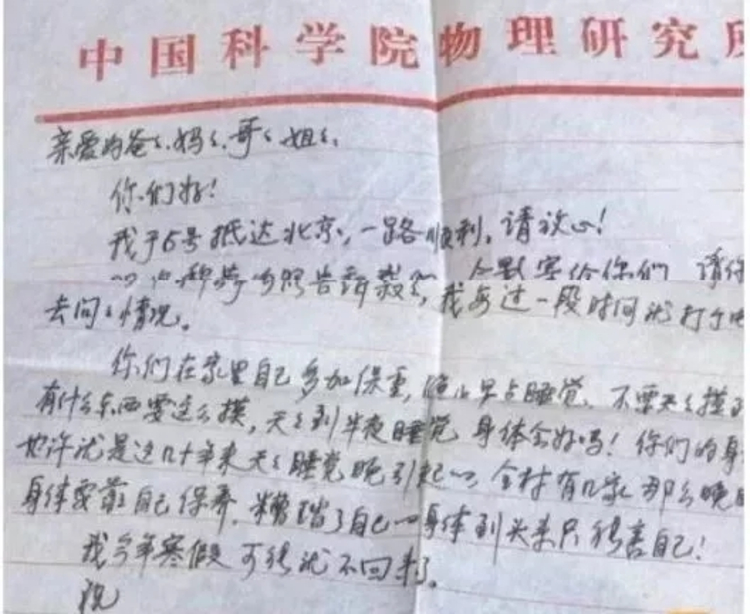 中国科学院物理研究所
亲爱的爸爸、妈妈、哥哥、姐姐、
你们好!
我于6号抵达北京,一路顺利,请放心!
告诉我 给你们 请你
去问问情况。 我每过一段时间就打个电
你们在家里自己多加保重,晚上早点睡觉、不要天天摸
有什么东西要这么摸,天天到半夜睡觉 身体会好吗!你们的身
也许就是这几十年来天天睡觉晚引起的,全村有几家那么晚
身体要靠自己保养,糟蹋了自己的身体到头来只能害自己!
我今年寒假可能就不回来了。
祝